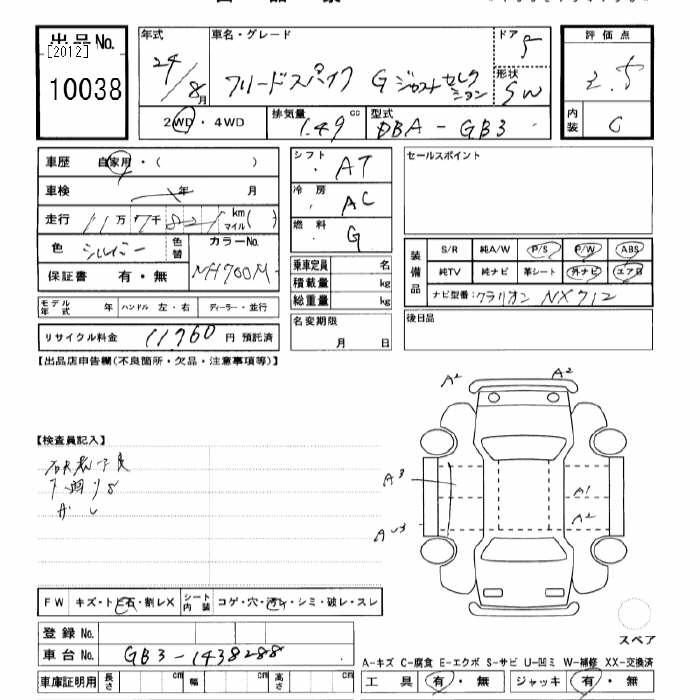 出品No.
[2012]
10038
年式 24/8月
車名・グレード
フリードスパイク G ジャストセレクション
ドア 5
形状 SW
評価点
内装 C
2WD・4WD
排気量 1.49 cc
型式 DBA-GB3
車歴 自家用・( )
車検 年 月
走行 11万7千821 km マイル( )
色 シルバー 色替
カラーNo. NH700M
保証書 有・無
モデル年式 年 ハンドル 左・右 ディーラー・並行
リサイクル料金 11760 円 預託済
シフト AT
冷房 AC
燃料 G
乗車定員 名
積載量 kg
総重量 kg
名変期限
月 日
セールスポイント
装備品
S/R 純A/W P/S P/W ABS
純TV 純ナビ 革シート 外ナビ エアB
ナビ型番: クラリオン NX712
後日品
【出品店申告欄(不良箇所・欠品・注意事項等)】
【検査員記入】
A2
A2
A3
A1
A2
FW キズ・トビ石・割レX
シート内装 コゲ・穴・汚レ・シミ・破レ・スレ
登録No.
車台No. GB3-1438288
車庫証明用 長さ cm 幅 cm 高さ cm
スペア
A-キズ C-腐食 E-エクボ S-サビ U-凹ミ W-補修 XX-交換済
工具 有・無 ジャッキ 有・無